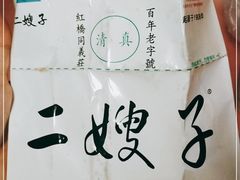 二嫂子
紅橋同義莊
清真
百年老字號
二嫂子®